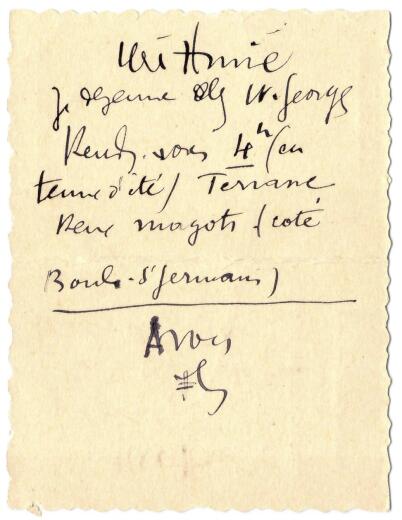 je déjeune chez W. George
Rendz. vous 4h (en
tenue d'été) Terrasse
Deux magots (coté
Boule. St Germain)